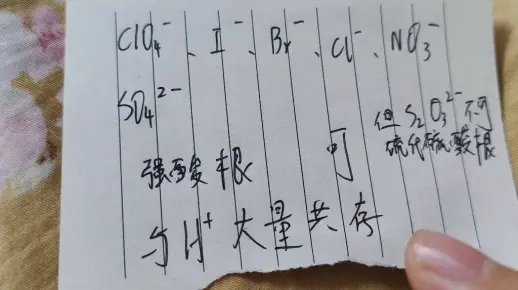 ClO₄⁻、I⁻、Br⁻、Cl⁻、NO₃⁻
SO₄²⁻
但 S₂O₃²⁻ 不可
硫代硫酸根
强酸根 可
与H⁺大量共存